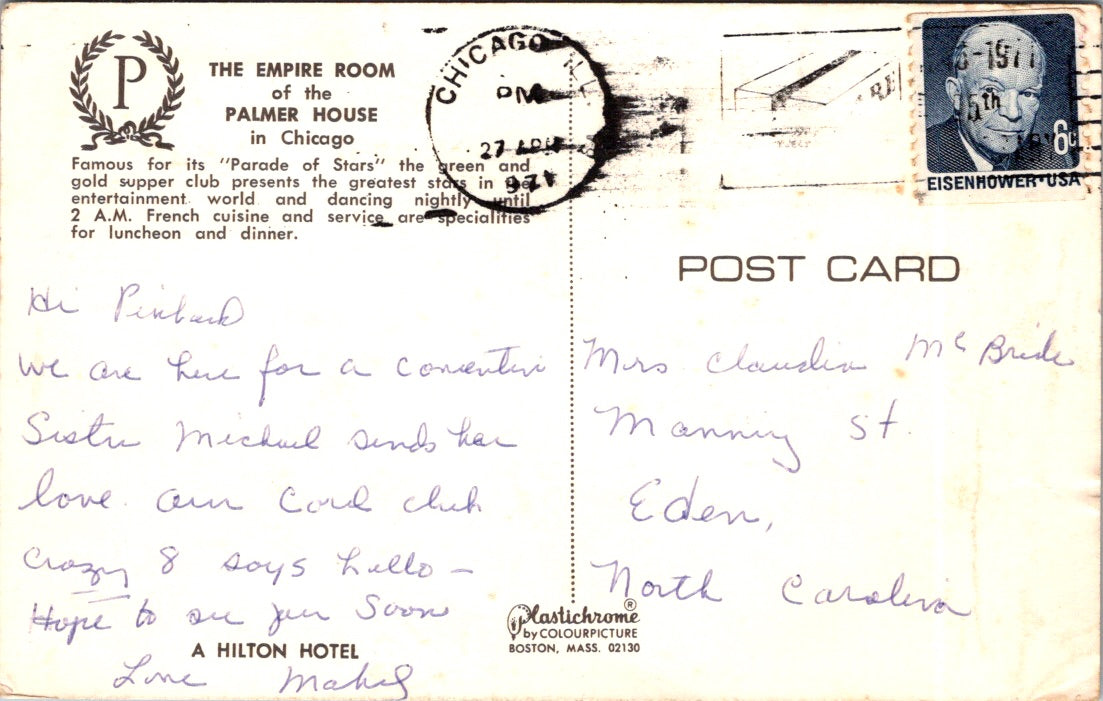 P
THE EMPIRE ROOM
of the
PALMER HOUSE
in Chicago
Famous for its "Parade of Stars" the green and
gold supper club presents the greatest stars in the
entertainment world and dancing nightly until
2 A.M. French cuisine and service are specialities
for luncheon and dinner.
CHICAGO ILL
PM
27 APR
1971
-1971
5th
6c
EISENHOWER·USA
POST CARD
Hi
We are here for a convention
Sister Michael sends her
love. our Card club
Crazy 8 says hello –
Hope to see you Soon
Love Mabel
Mrs Claudia McBride
Manning St.
Eden,
North Carolina
A HILTON HOTEL
Plastichrome®
by COLOURPICTURE
BOSTON, MASS. 02130